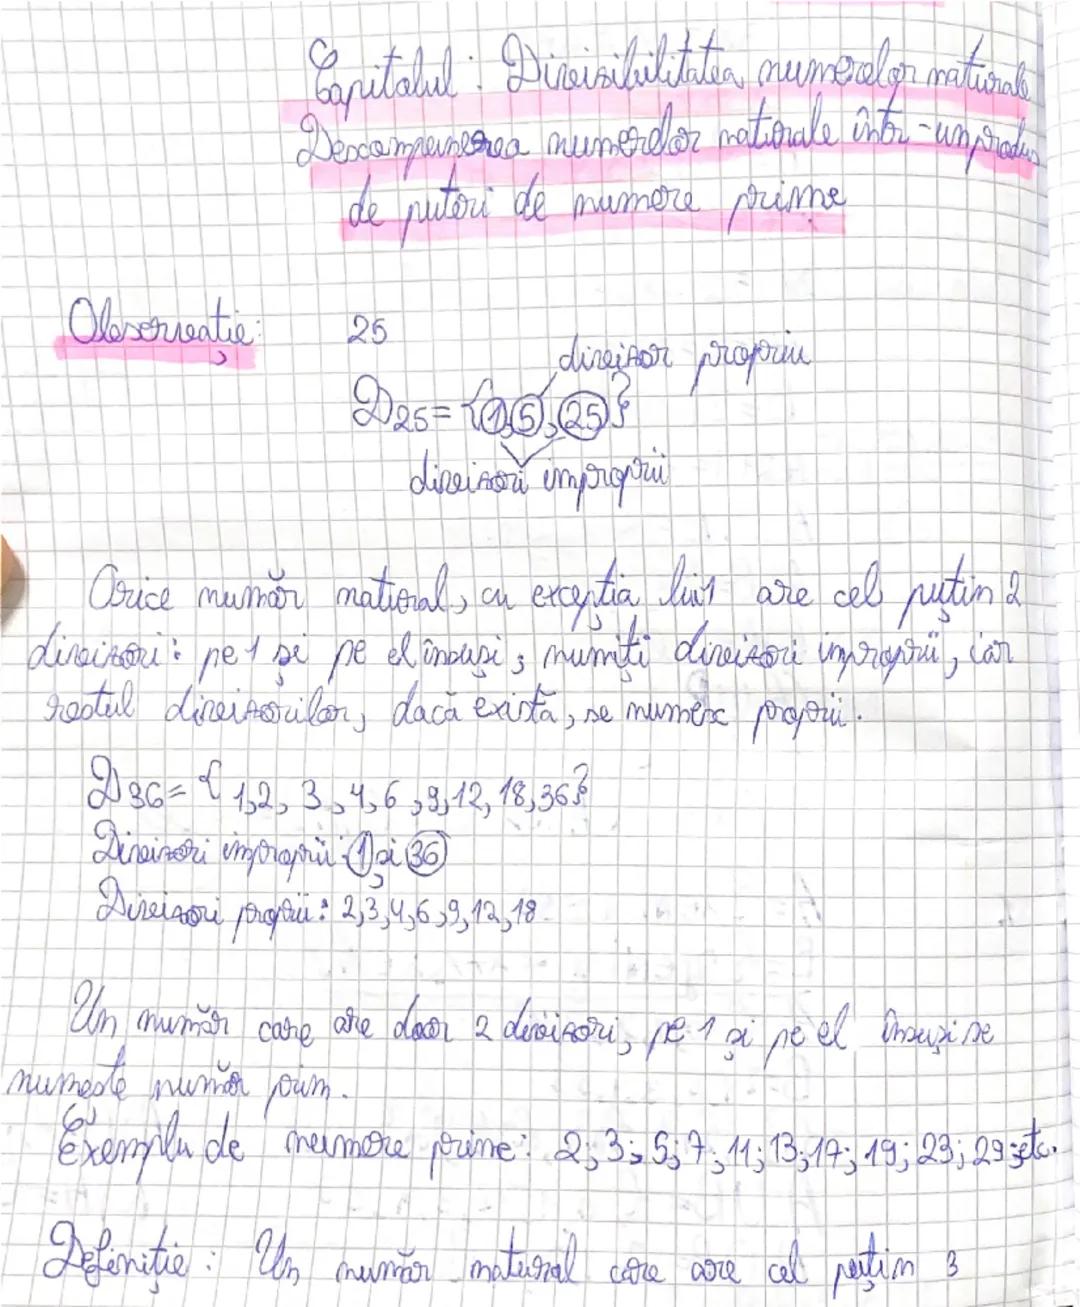 Capitolul: Divizibilitatea numerelor naturale
Descompunerea numerelor naturale într-un produs
de puteri de numere prime
Observație: 25
divizor propriu
D25= {1,5,25}
divizori improprii
Orice număr natural, cu excepția lui 1 are cel puțin 2
divizori: pe 1 și pe el însuși, numiți divizori improprii, iar
restul divizorilor, dacă există, se numesc proprii.
D36= {1,2,3,4,6,9,12,18,36}
Divizori improprii: 1 și 36
Divizori proprii: 2,3,4,6,9,12,18
Un număr care are doar 2 divizori, pe 1 și pe el însuși se
numește număr prim.
Exemplu de numere prime: 2;3;5;7;11;13;17;19;23;29;etc.
Definiție: Un număr natural care are cel puțin 3